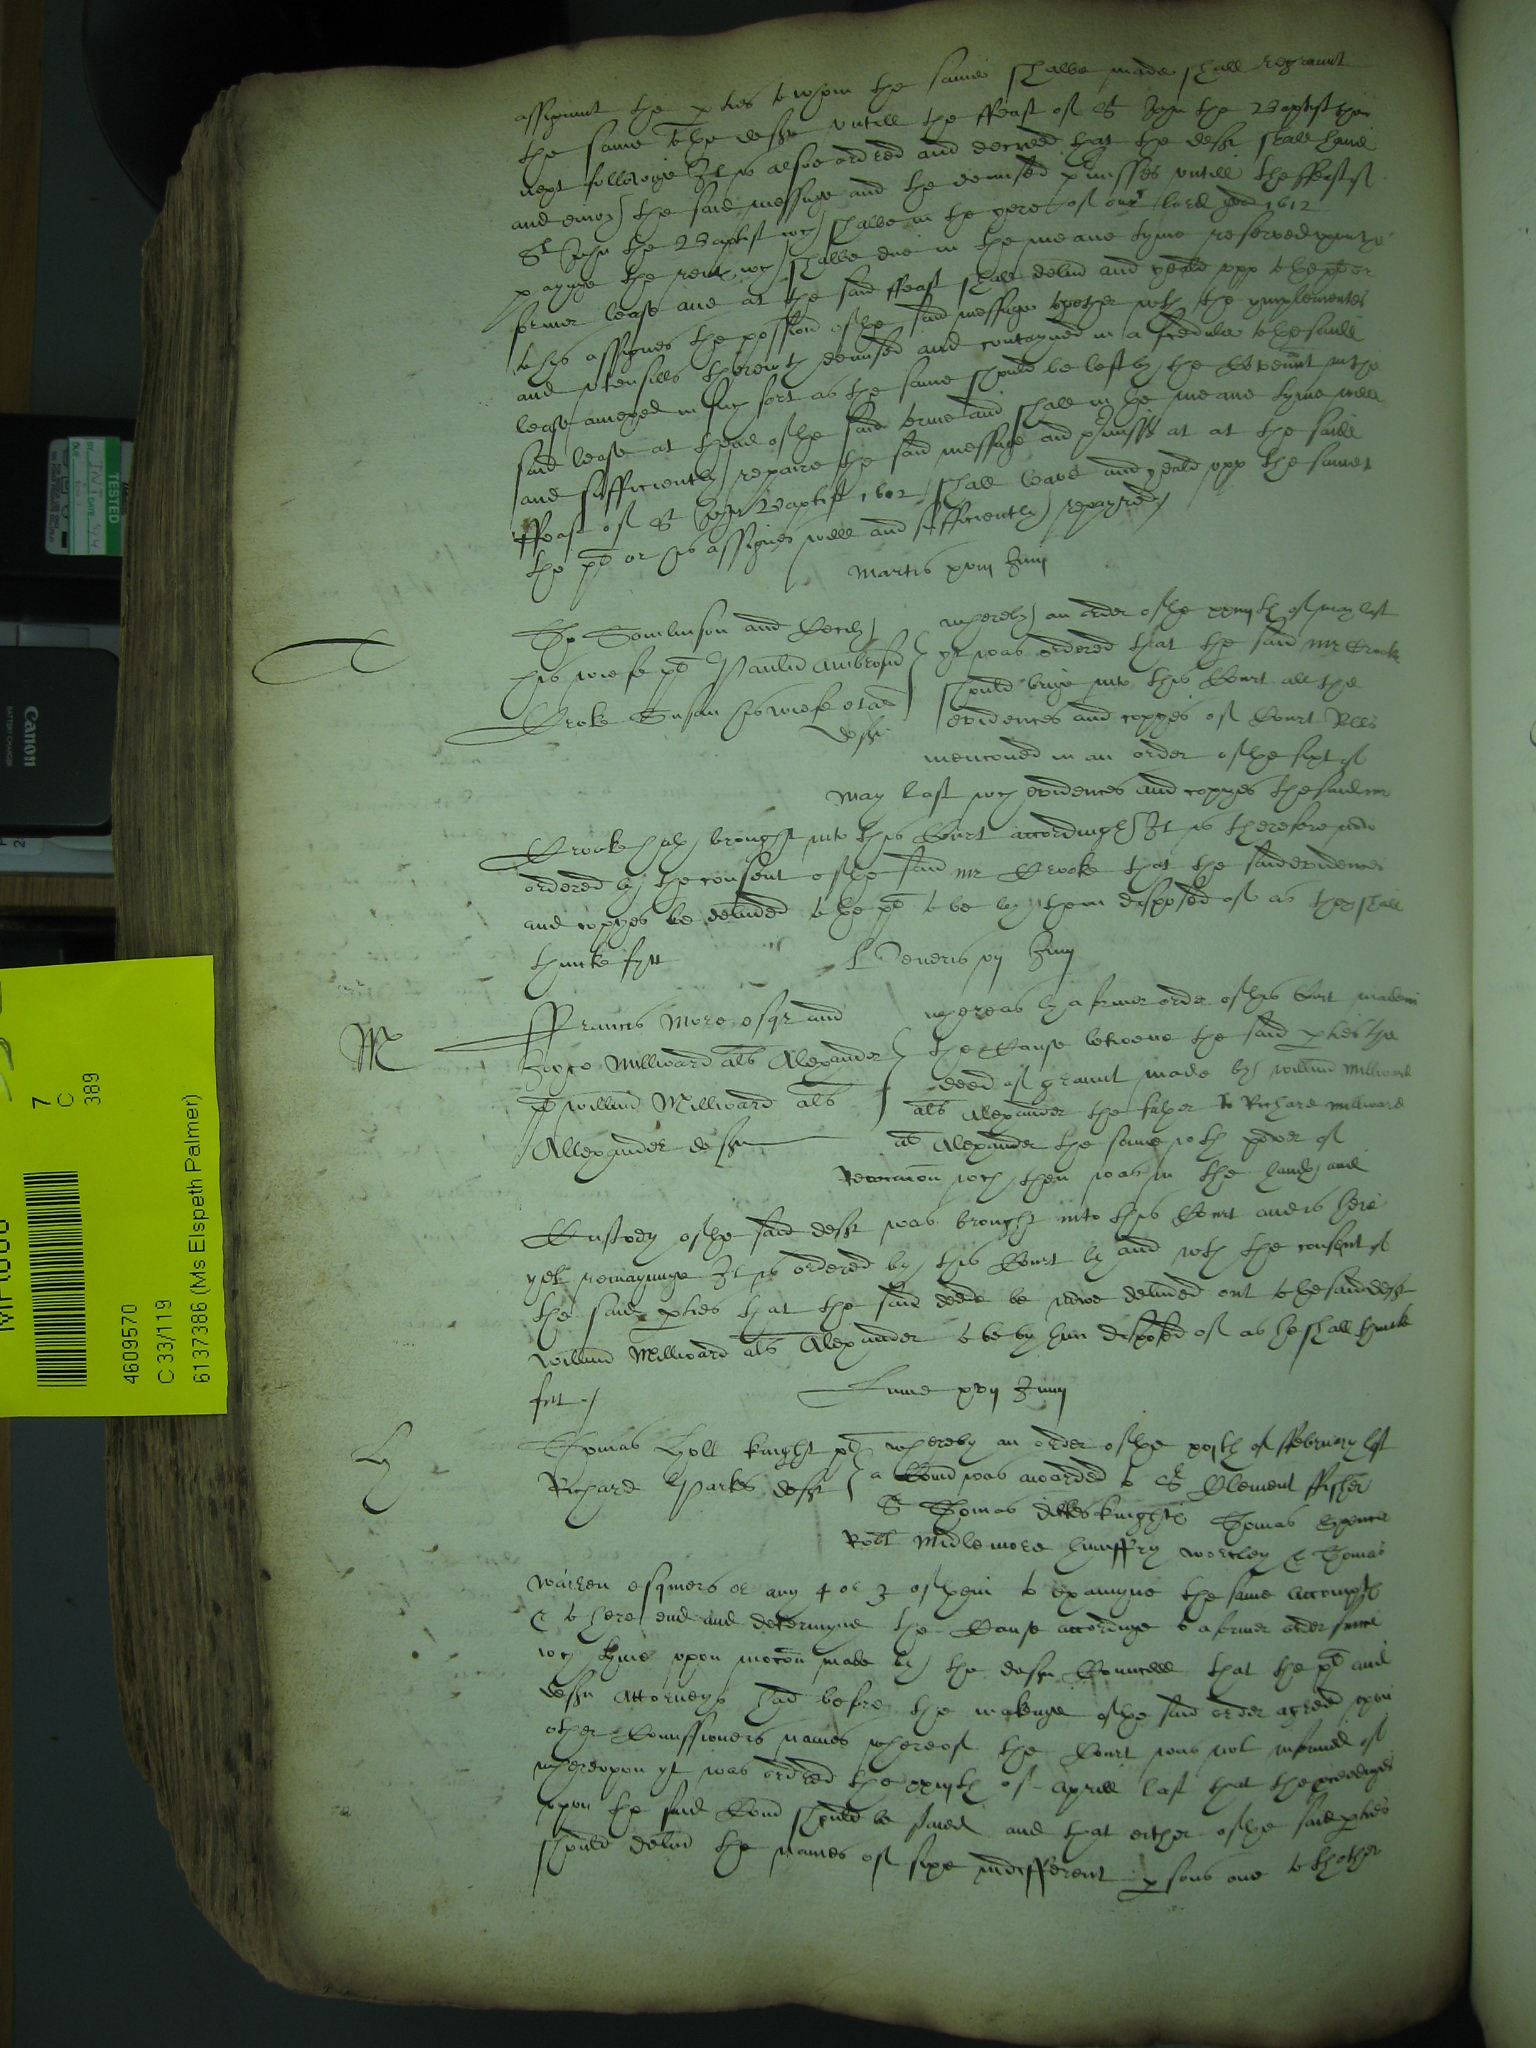 assignmt the pties to whom the same shalbe made shall regraunt
the same to the defte untill the ffeast of St John the Baptist then
next followinge It is alsoe ordred and decreed that the deft shall have
and enioy the said messuage and the demised pmisses untill the ffeast of
St John the Baptist wch shalbe in the yere of our lord god 1612
payinge the rent wch shalbe due in the meane tyme reserved upon the
former lease and at the said ffeast shall delivd and yeald upp to the plt or
to his assignes the possion of the said messuage together wth the ymplementes
and utensills therewth demised and contayned in a scedule to the saide
lease anexed in such sort as the same should be left by the Covennt in the
said lease at thend of the said terme and shall in the meane tyme well
and sufficiently repaire the said messuage and pmisss at at the saide
ffeast of St John Baptist 1612 shall leave and yeald upp the same to
the plt or his assignes well and sufficiently repayred
Martis xviij Junij
Tho Tomlinson and Cecily
his wiefe plt Paulus Ambrosius
Croke Susan his wiefe et ad
defte
whereby an order of the xxiiijth of may last
yt was ordered that the said mr Crooke
should bringe into this Court all the
evidences and copyes of Court Rlls
mencioned in an order of the sixt of
May last wch evidences and copyes the said mr
Crooke hath brought into this Court accordingly It is therefore
ordered by the consent of the said mr Crooke that the said evidences
and copyes be delived to the plt to be by them disposed of as they shall
thincke fytt
Veneris Junij
M
Ffrancis More esqr and
Joyce Millward als Alexander
plt Willm Millward als
Allexander deft
whereas by a former order of this Court made in
the Cause betweene the said pties the
deed of graunt made by willm Millward
als Alexander the father to Richard Millward
als Alexander the sonne wth power of
Revocacon wch then was in the hands and
Custody of the said deft was brought into this Court and is here
yet remayninge It is ordered by this Court by and wth the consent of
the said pties that the said deede be nowe delived out to the said deft
Willm Millward als Alexander to be by him disposed of as he shall thincke
fitt
Lune xvij Junij
Thomas Holt knight plt
Richard Parkes deft
whereby an order of the of ffebruary last
a Comd was awarded to Sr Clement ffisher
Sr Thomas knights Thomas Spencer
Robt Midlemore humffry wortley & Thomas
Warren esquiers or any 4 or 3 of them to examyne the same accompts
& to here end and determyne the Cause accordinge to a former order since
wch tyme upon mocon made by the defte Councell that the plt and
defte Attorneys had before the makeinge of the said order agreed upon
other Comissioners names whereof the Court was not informed of
whereupon yt was ordred the xxiijth of Aprill last that the proceedings
upon the said Comd should be staied and that either of the said pties
should delivd the names of sixe indifferent psons one to thother
Canon
BATTERY CHARGER
TESTED
7
C
389
4609570
C 33/119
6137386 (Ms Elspeth Palmer)